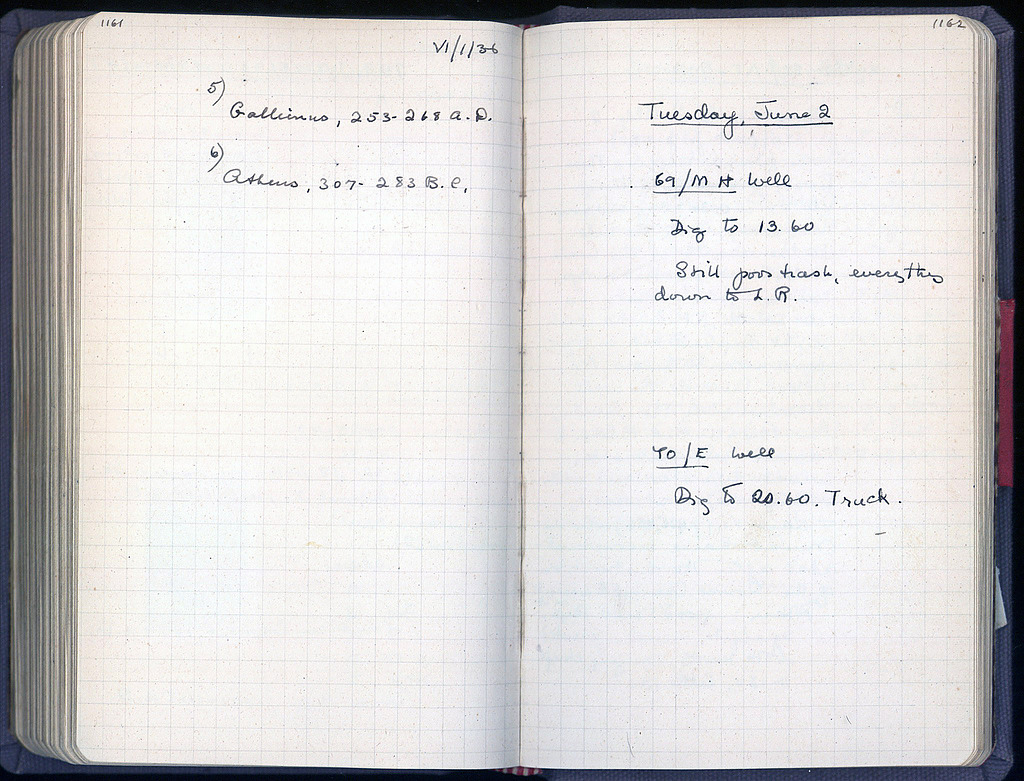 1161
VI/1/36
5)
Gallienus, 253-268 A.D.
6)
Athens, 307-283 B.C.
1162
Tuesday, June 2
69/MH Well
Dig to 13.60
Still poor trash, everything
down to L.R.
70/E Well
Dig to 20.60. Truck.